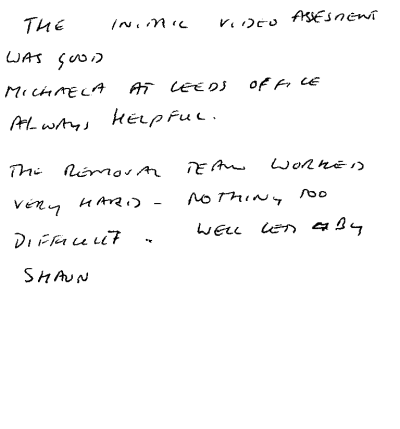 THE INITIAL VIDEO ASSESMENT
WAS GOOD
MICHAELA AT LEEDS OFFICE
ALWAYS HELPFUL.
THE REMOVAL TEAM WORKED
VERY HARD - NOTHING TOO
DIFFICULT. WELL LED BY
SHAUN